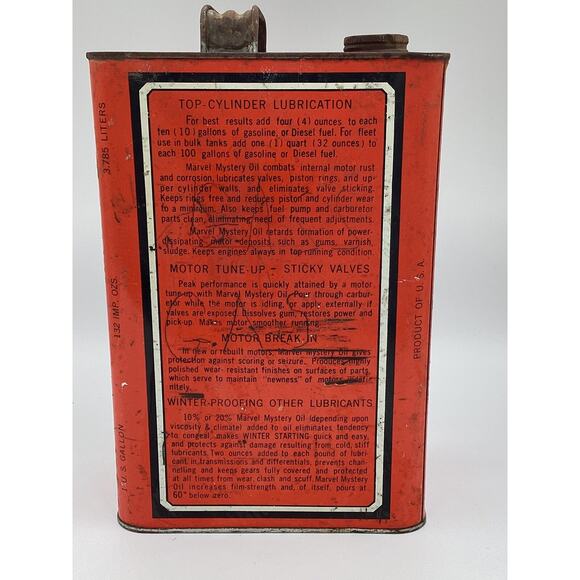 TOP-CYLINDER LUBRICATION
For best results add four (4) ounces to each
ten (10) gallons of gasoline, or Diesel fuel. For fleet
use in bulk tanks add one (1) quart (32 ounces) to
each 100 gallons of gasoline or Diesel fuel.
Marvel Mystery Oil combats internal motor rust
and corrosion, lubricates valves, piston rings, and up-
per cylinder walls, and eliminates valve sticking.
Keeps rings free and reduces piston and cylinder wear
to a minimum. Also keeps fuel pump and carburetor
parts clean, eliminating need of frequent adjustments.
Marvel Mystery Oil retards formation of power-
dissipating motor deposits such as gums, varnish,
sludge. Keeps engines always in top running condition.
MOTOR TUNE-UP - STICKY VALVES
Peak performance is quickly attained by a motor
tune-up with Marvel Mystery Oil. Pour through carbur-
etor while the motor is idling, or apply externally if
valves are exposed. Dissolves gum, restores power and
pick-up. Makes motor smoother running.
MOTOR BREAK-IN
In new or rebuilt motors, Marvel Mystery Oil gives
protection against scoring or seizure. Produces highly
polished wear-resistant finishes on surfaces of parts,
which serve to maintain "newness" of motors indefi-
nitely.
WINTER-PROOFING OTHER LUBRICANTS
10% or 20% Marvel Mystery Oil (depending upon
viscosity & climate) added to oil eliminates tendency
to congeal, makes WINTER STARTING quick and easy,
and protects against damage resulting from cold, stiff
lubricants. Two ounces added to each pound of lubri-
cant in transmissions and differentials, prevents chan-
nelling and keeps gears fully covered and protected
at all times from wear, clash and scuff. Marvel Mystery
Oil increases film-strength and, of itself, pours at
60° below zero.
1 U.S. GALLON
132 IMP. OZS.
3.785 LITERS
PRODUCT OF U.S.A.